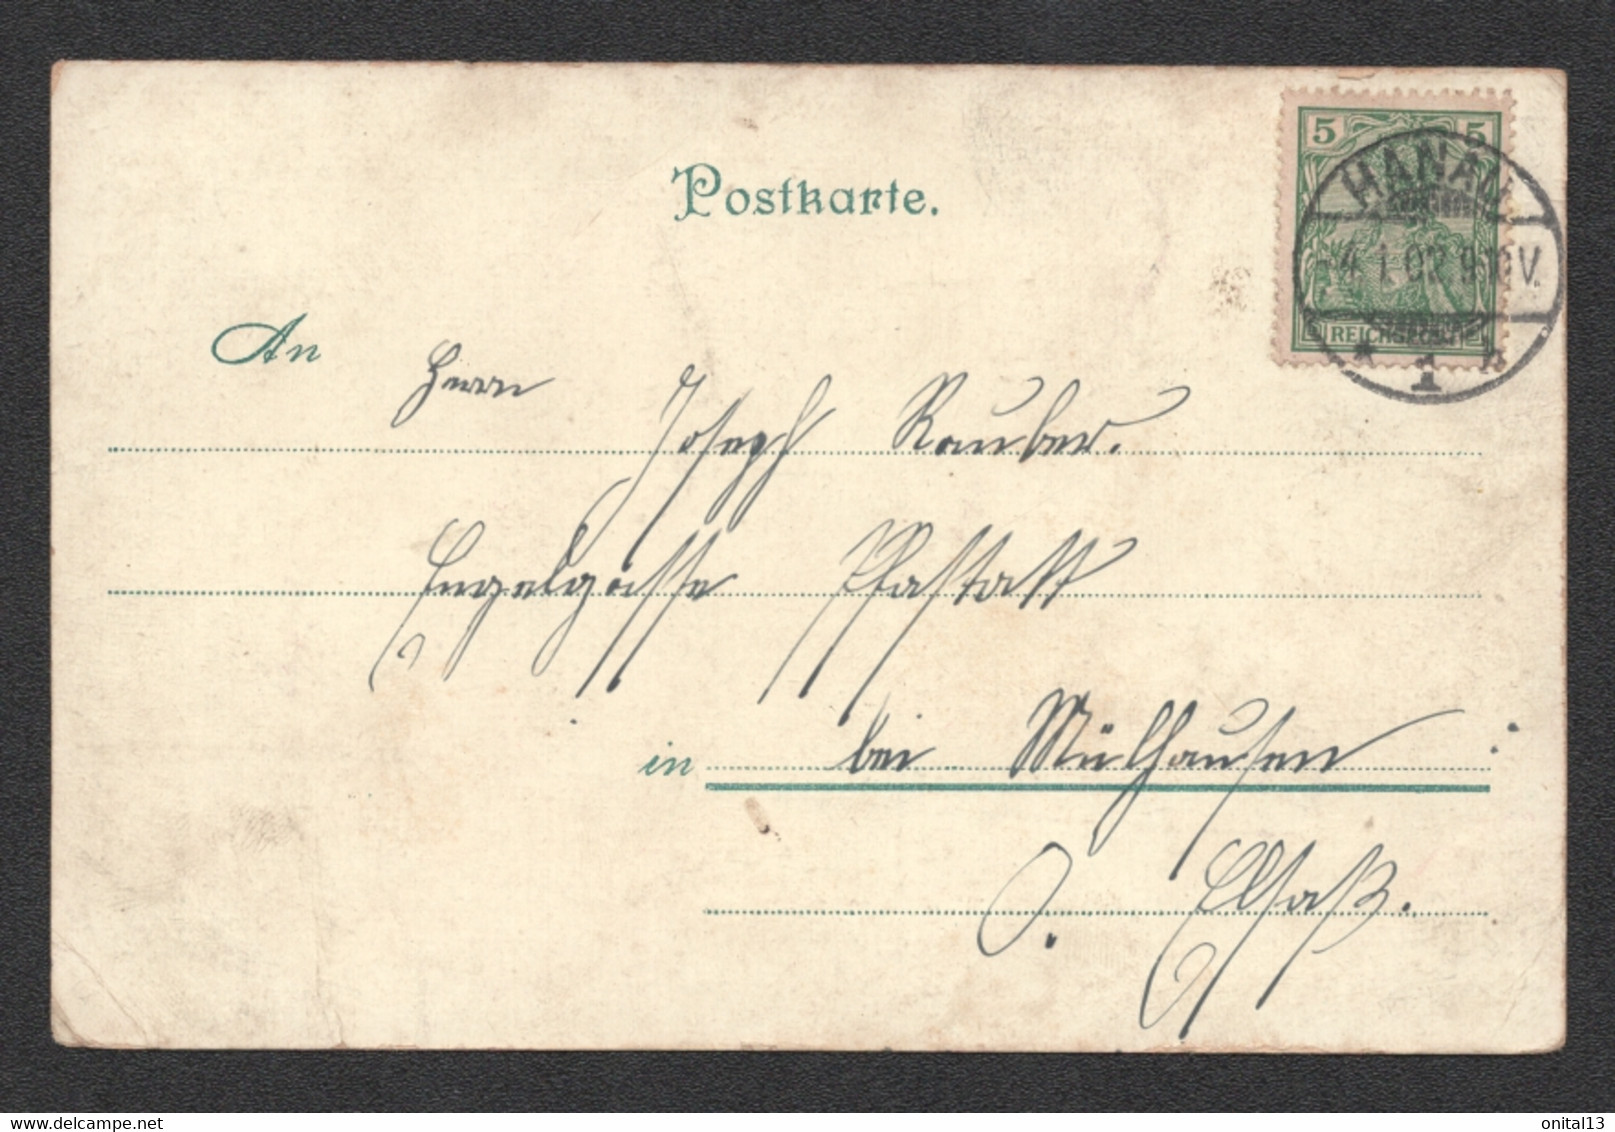 Postkarte.
5 5
HANAU
4.1.02 9-10V.
* 1 a
REICHSPOST
An Herrn
Joseph Rauber.
Engelgasse Pfastatt
in bei Mülhausen
O. Elsaß.
delcampe.net
onital13